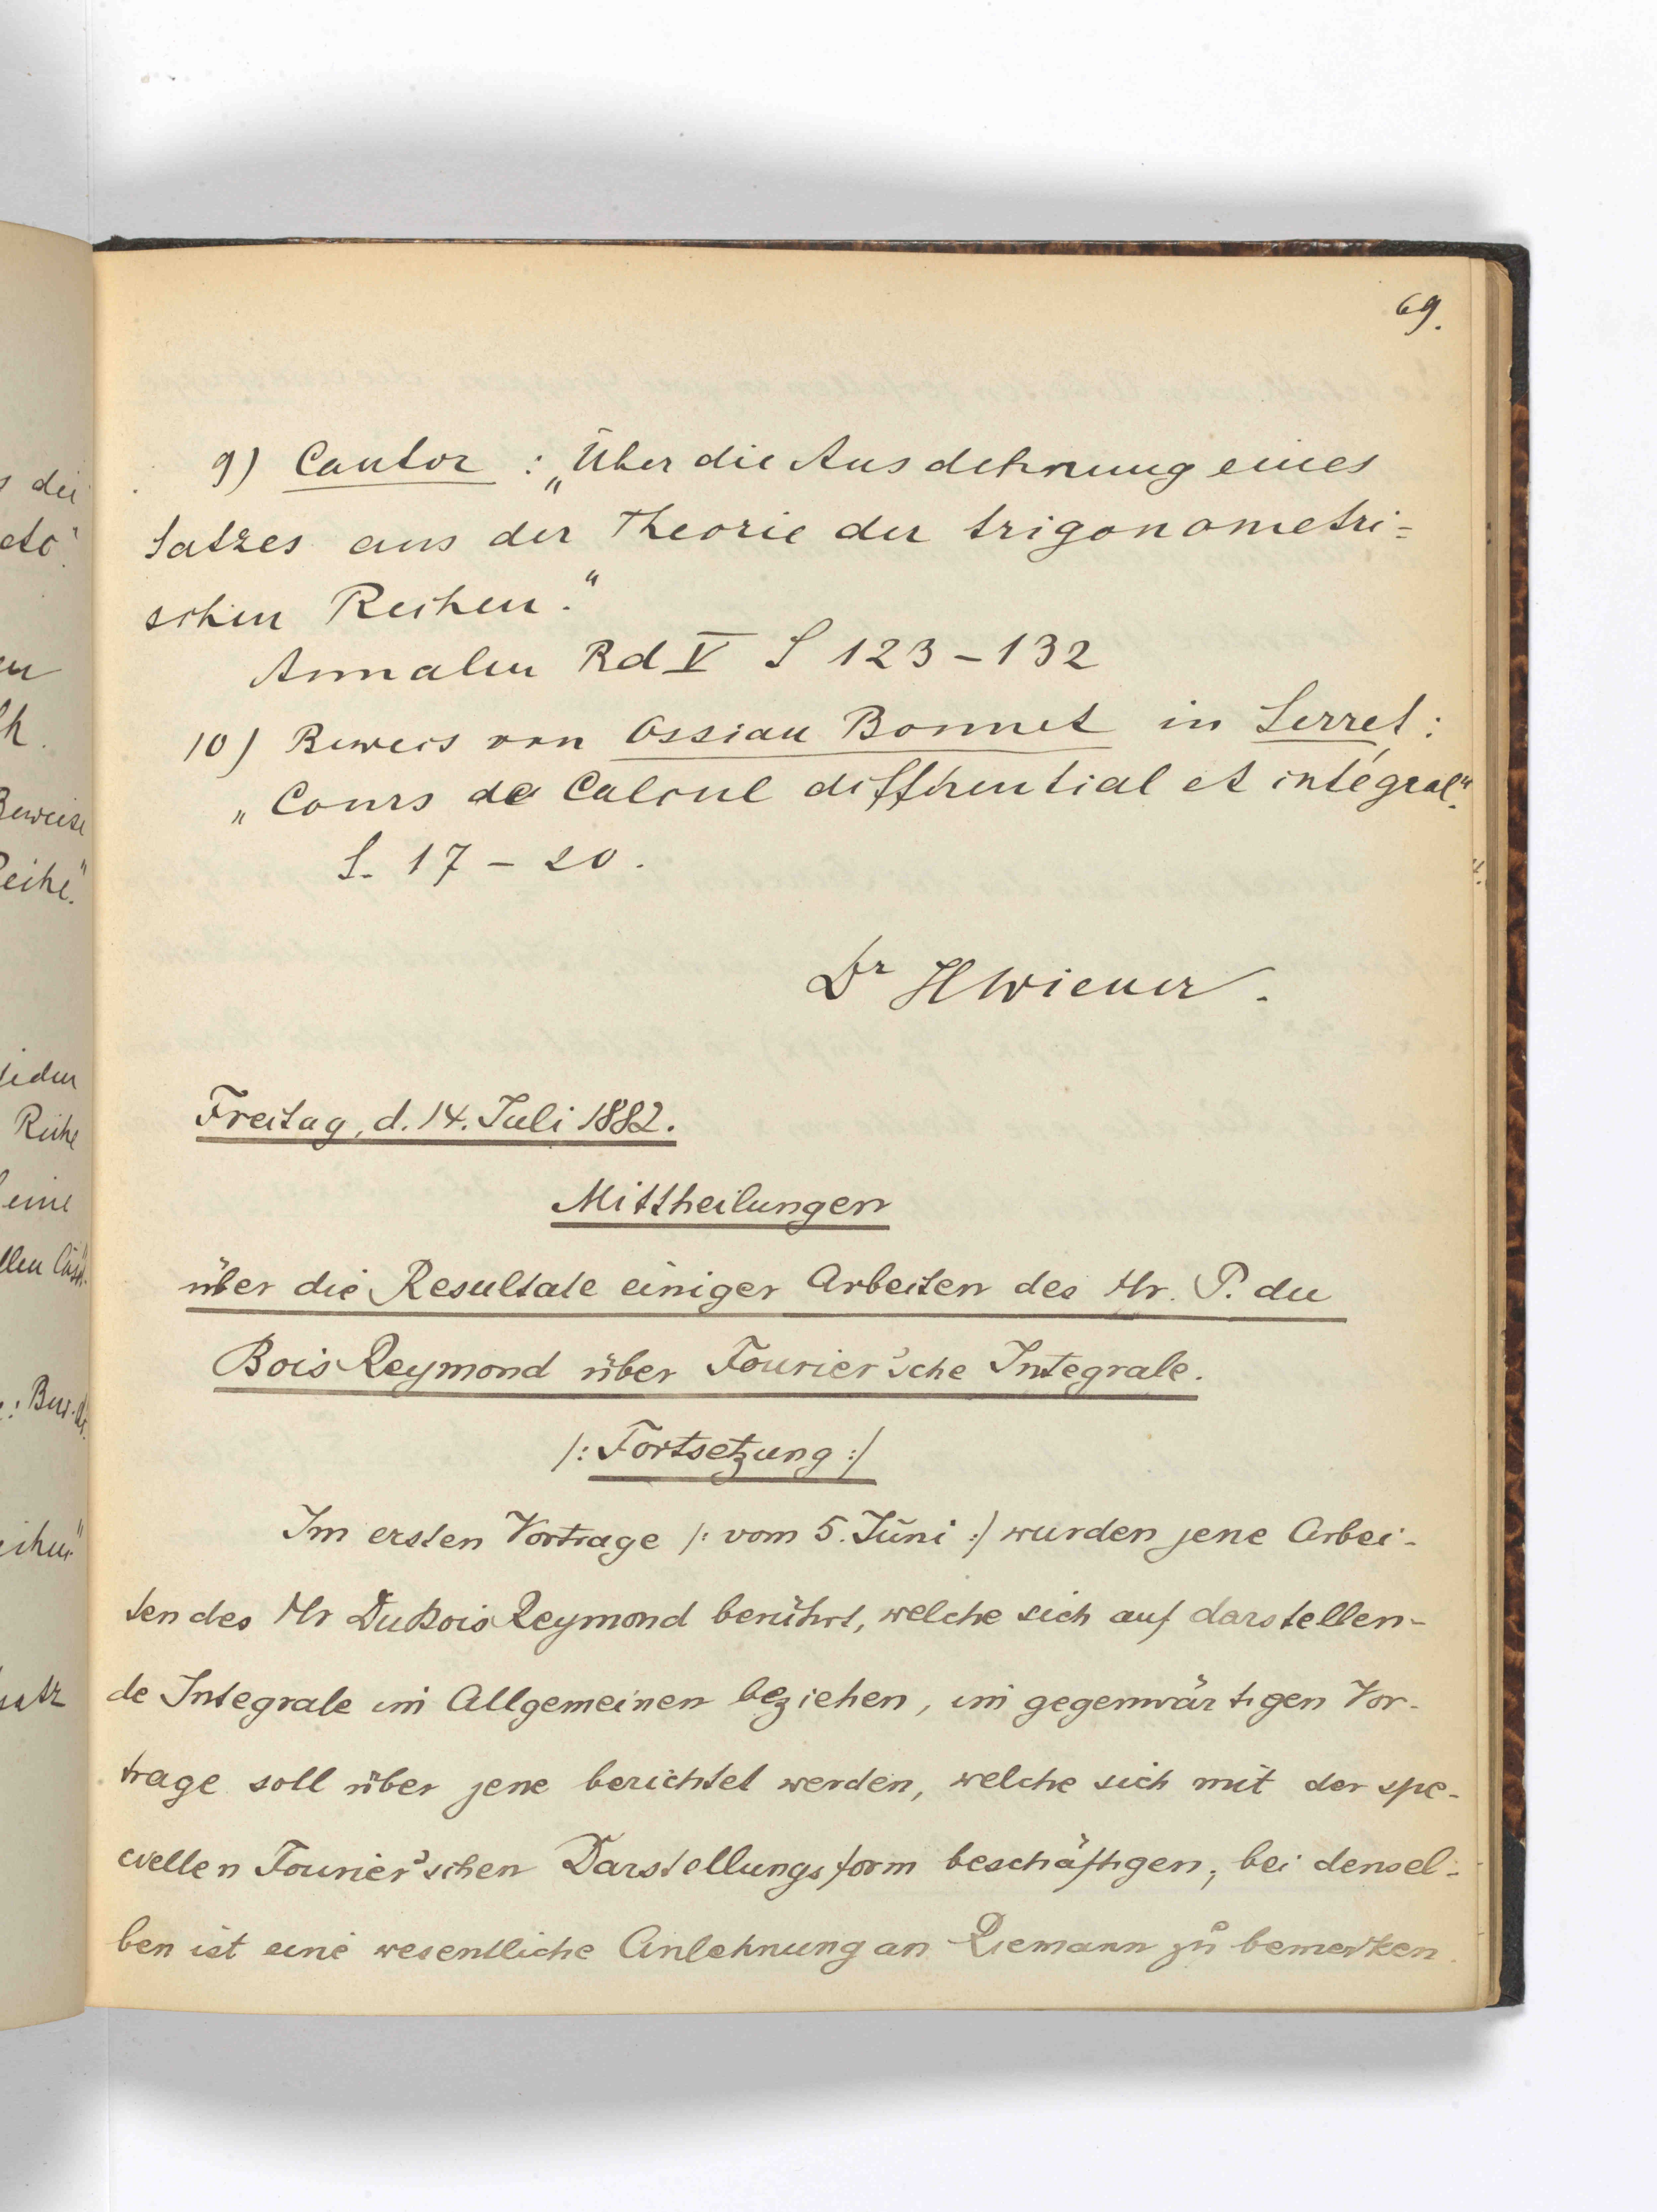 69.
9) Cantor : „Über die Ausdehnung eines
Satzes aus der Theorie der trigonometri=
schen Reihen."
Annalen Bd V S 123 – 132
10) Beweis von Ossian Bonnet in Serret :
„Cours de Calcul différential et intégral".
S. 17 – 20.
Dr HWiener.
Freitag, d. 14. Juli 1882.
Mittheilungen
über die Resultate einiger Arbeiten des Hr. P. du
Bois Reymond über Fourier'sche Integrale.
/: Fortsetzung :/
Im ersten Vortrage /: vom 5. Juni :/ wurden jene Arbei-
ten des Hr DuBois Reymond berührt, welche sich auf darstellen-
de Integrale im Allgemeinen beziehen, im gegenwärtigen Vor-
trage soll über jene berichtet werden, welche sich mit der spe-
ciellen Fourier'schen Darstellungsform beschäftigen; bei densel-
ben ist eine wesentliche Anlehnung an Riemann zu bemerken
s die
etc."
en
th.
Beweise
Reihe."
jeden
Reihe
eine
satz